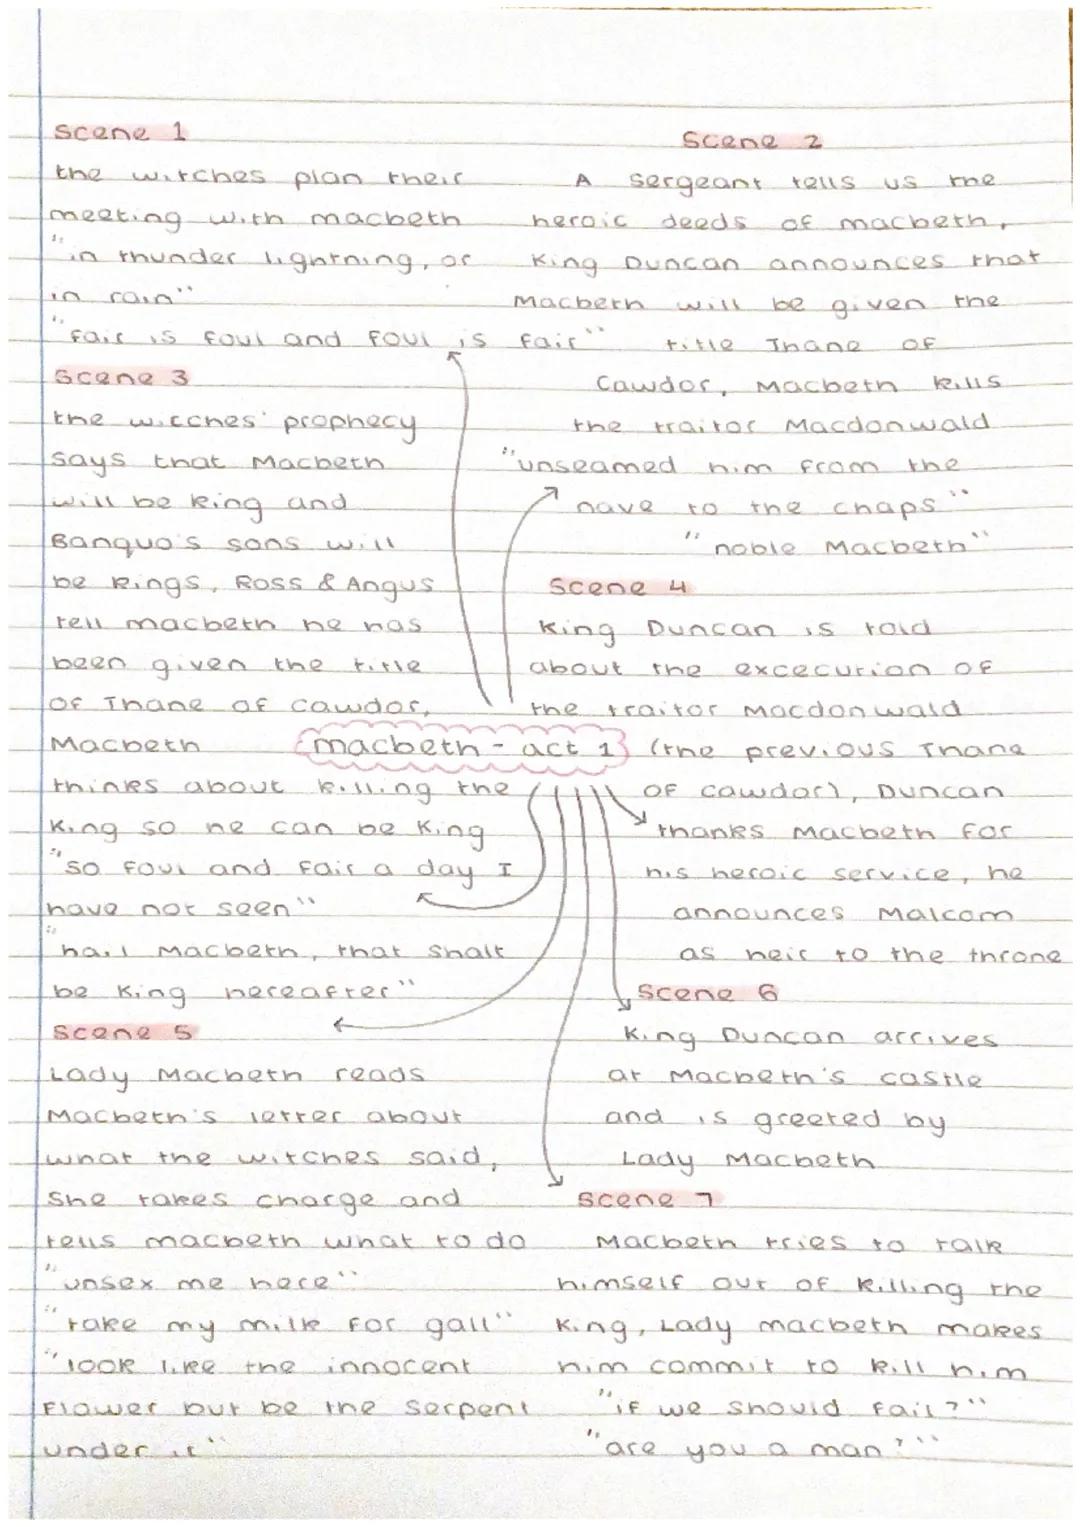 Scene 1
the witches plan their
meeting with macbeth
"in thunder lightning, or
in rain"
"fair is foul and foul is fair"
Scene 2
A sergeant tells us the
heroic deeds of macbeth,
King Duncan announces that
Macbeth will be given the
title Thane of
Cawdor, Macbeth kills
the traitor Macdonwald
"unseamed him from the
nave to the chaps"
"noble Macbeth"
Scene 3
the witches' prophecy
says that Macbeth
will be king and
Banquo's sons will
be kings, Ross & Angus
tell macbeth he has
been given the title
of Thane of cawdor,
Macbeth
thinks about killing the
King so he can be King
"so foul and fair a day I
have not seen"
"hail Macbeth, that shalt
be King hereafter"
macbeth - act 1
Scene 4
King Duncan is told
about the excecution of
the traitor Macdonwald
(the previous Thane
of cawdor), Duncan
thanks Macbeth for
his heroic service, he
announces Malcom
as heir to the throne
Scene 5
Lady Macbeth reads
Macbeth's letter about
what the witches said,
She takes charge and
tells macbeth what to do
"unsex me here"
"take my milk for gall"
"look like the innocent
flower but be the serpent
under it"
Scene 6
King Duncan arrives
at Macbeth's castle
and is greeted by
Lady Macbeth
Scene 7
Macbeth tries to talk
himself out of killing the
King, Lady macbeth makes
him commit to kill him
"if we should fail?"
"are you a man?"